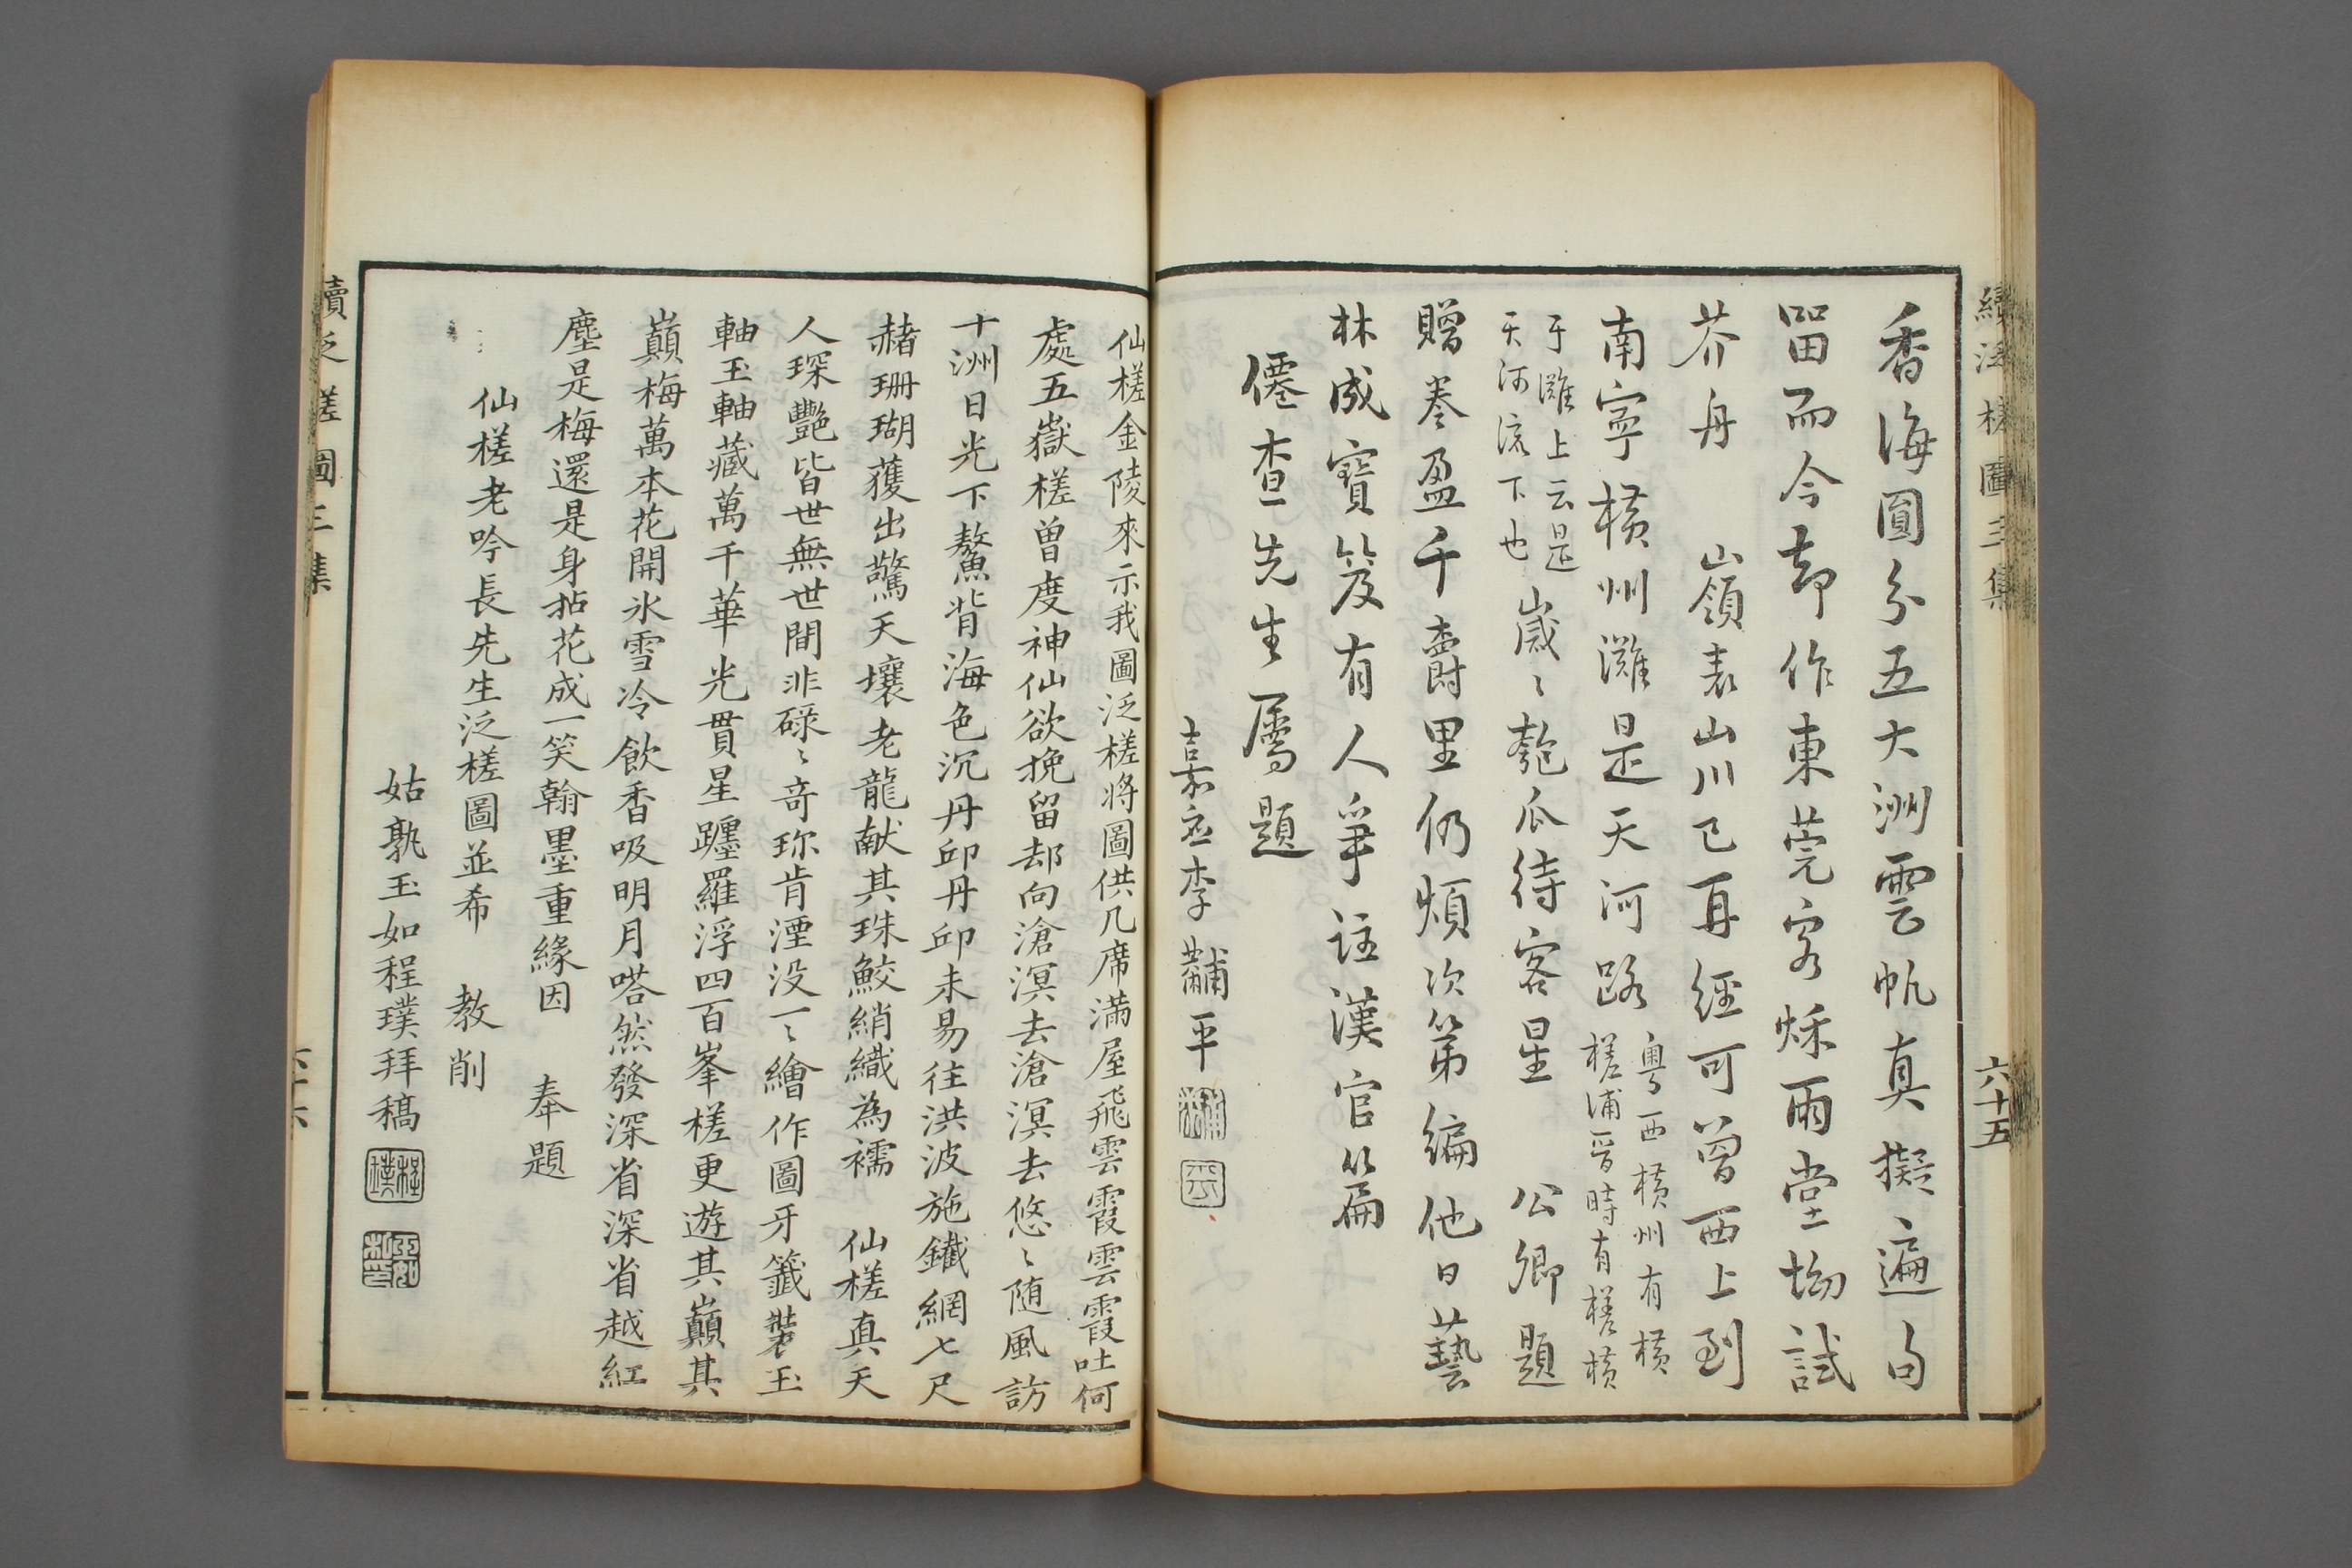 續泛槎圖三集
六十五
香海圓分五大洲雲帆真擬遍句
留而今却作東莞客烁雨堂坳試
芥舟 嶺表山川已再經可曾西上到
南寧橫州灘是天河路粵西橫州有橫
槎浦晉時有槎橫
于灘上云是
天河流下也歲〻匏瓜待客星 公卿題
贈卷盈千爵里仍煩次第編他日藝
林成寶笈有人爭註漢官篇
僊查先生屬題
嘉應李黼平
仙槎金陵來示我圖泛槎將圖供几席滿屋飛雲霞雲霞吐何
處五嶽槎曾度神仙欲挽留却向滄溟去滄溟去悠〻随風訪
十洲日光下鰲背海色沉丹邱丹邱未易往洪波施鐵網七尺
赭珊瑚獲出驚天壤老龍献其珠鮫綃織為襦 仙槎真天
人琛艷皆世無世間非碌〻竒珎肯湮没一〻繪作圖牙籤裝玉
軸玉軸藏萬千華光貫星躔羅浮四百峯槎更遊其巔其
巔梅萬本花開氷雪冷飲香吸明月嗒然發深省深省越紅
塵是梅還是身拈花成一笑翰墨重緣因 奉題
仙槎老吟長先生泛槎圖並希 教削
姑孰玉如程璞拜稿
程璞
玉如
續泛槎圖三集
六十六